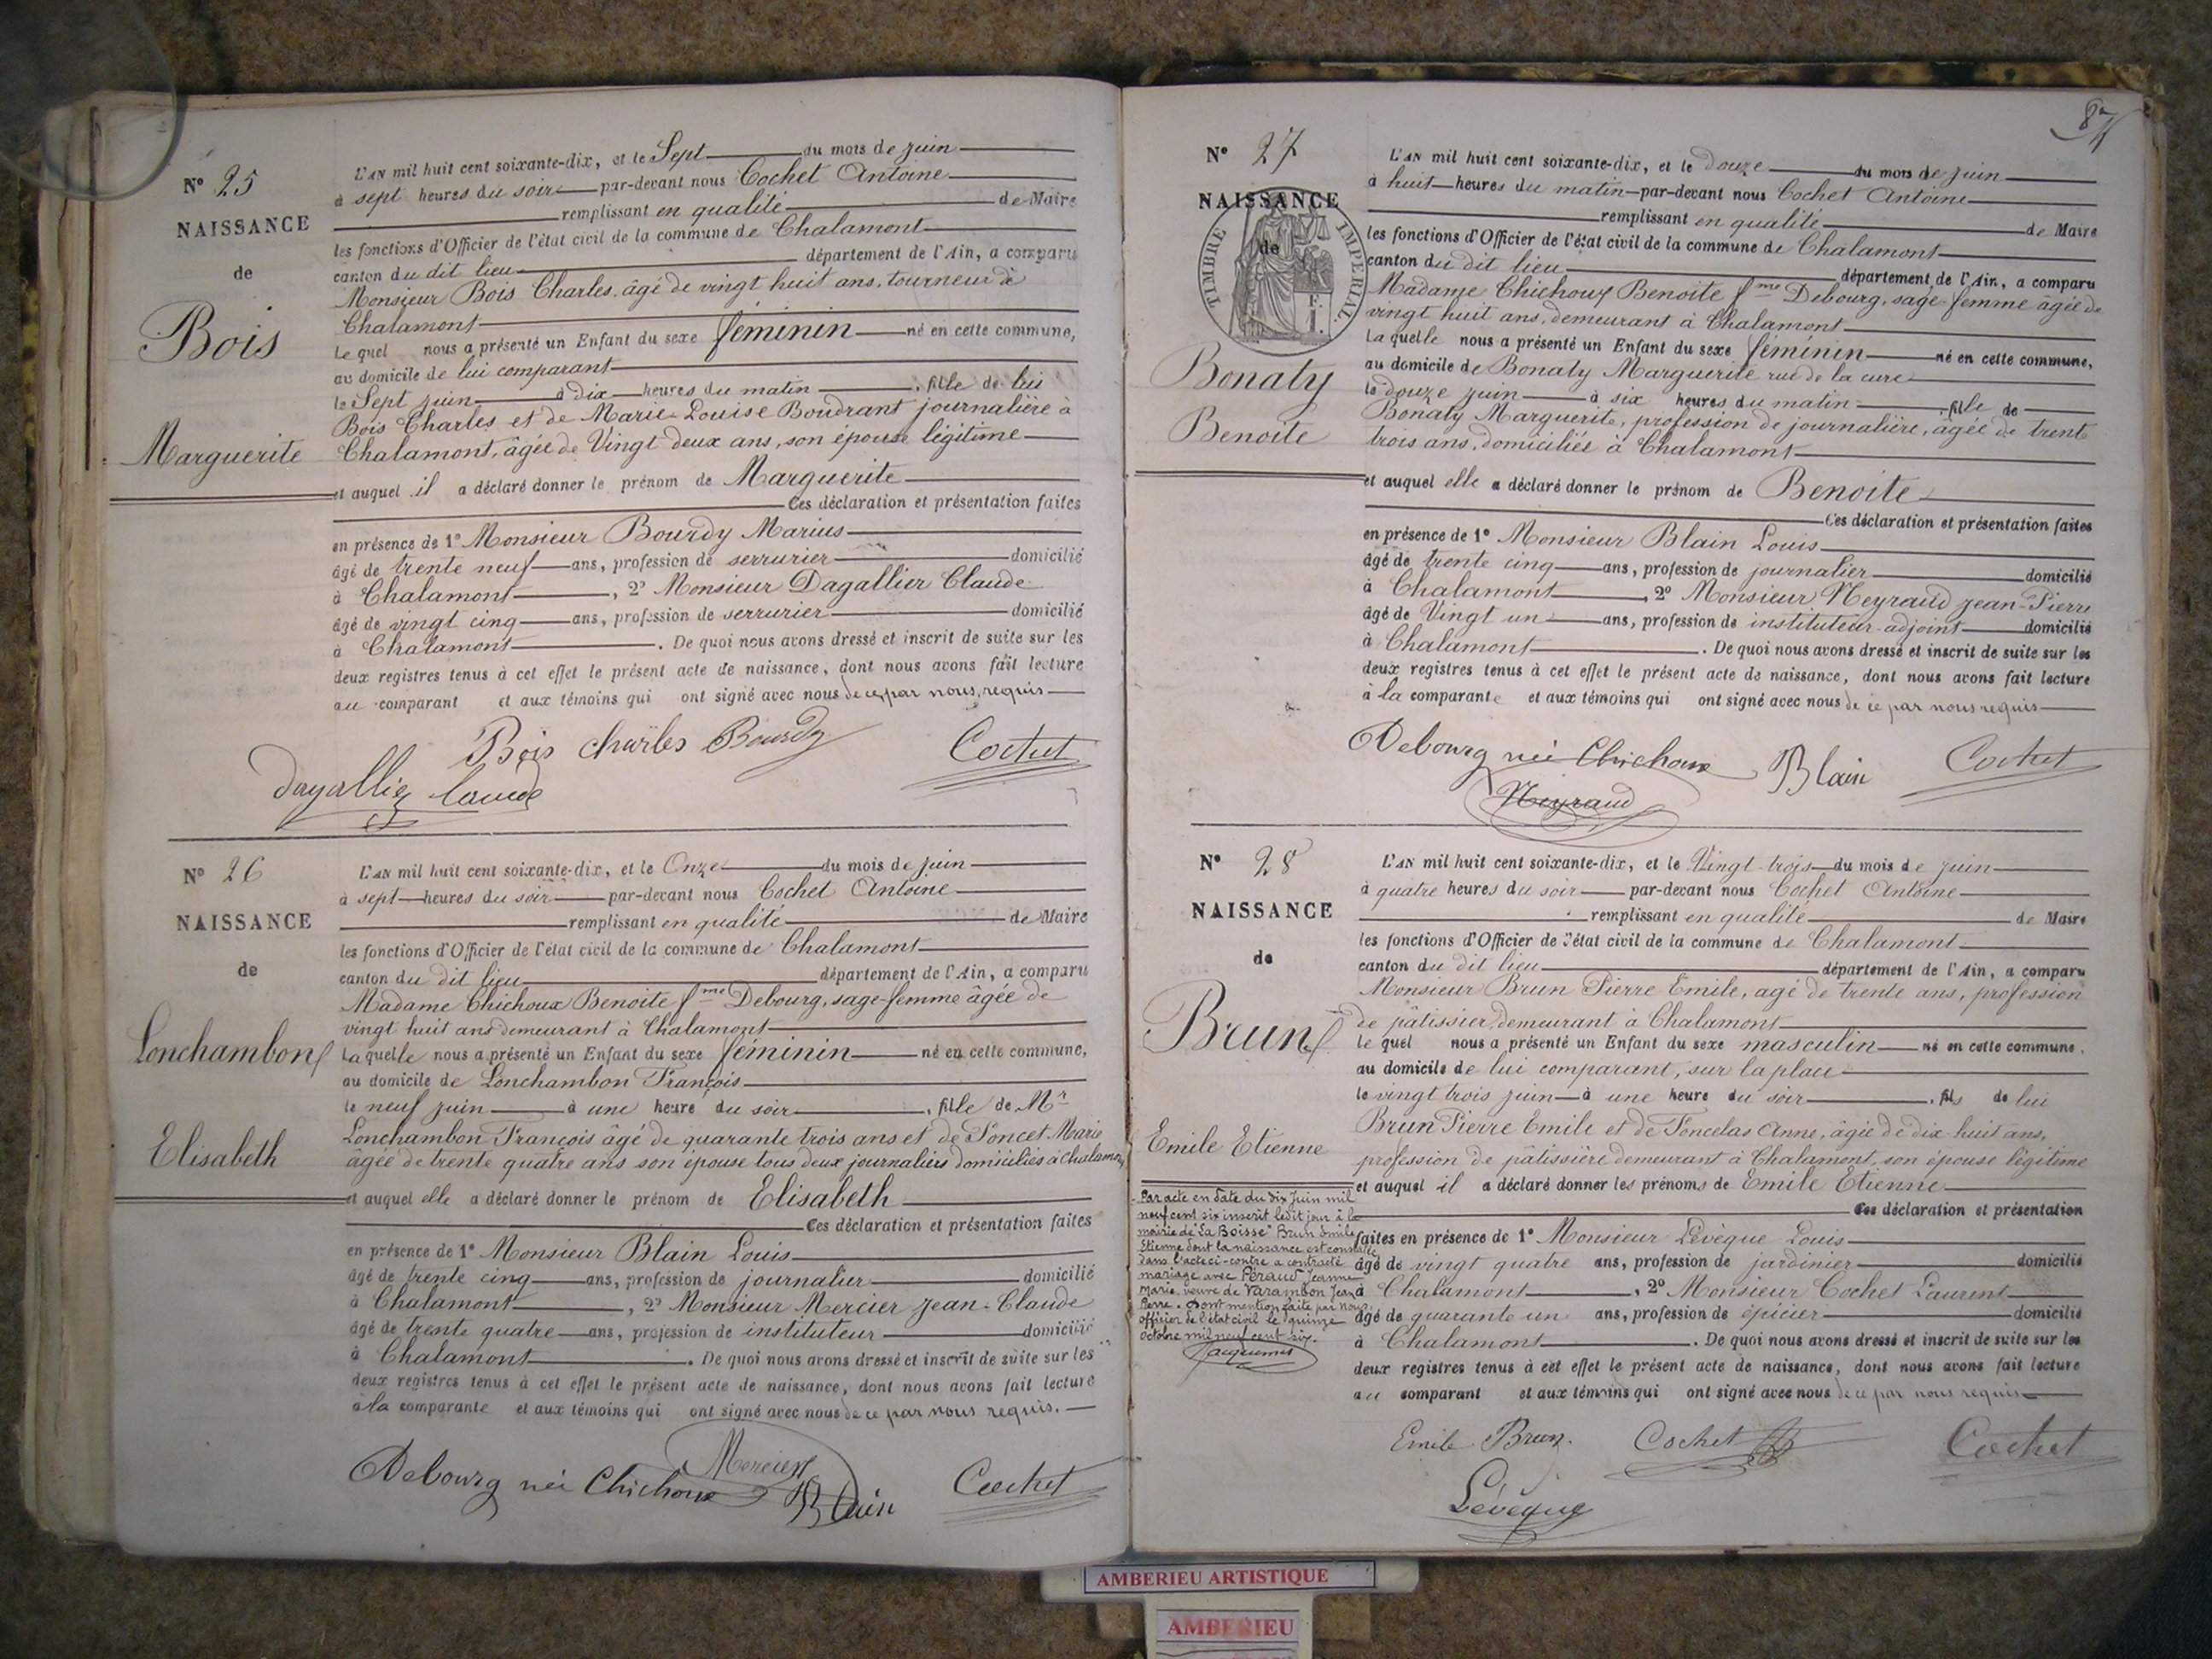 N° 25
NAISSANCE
de
Bois
Marguerite
L'AN mil huit cent soixante-dix, et le Sept du mois de juin
à sept heures du soir par-devant nous Cochet Antoine
remplissant en qualité de Maire
les fonctions d'Officier de l'état civil de la commune de Chalamont
canton du dit lieu département de l'Ain, a comparu
Monsieur Bois Charles, âgé de vingt huit ans, tourneur à
Chalamont
Le quel nous a présenté un Enfant du sexe féminin né en cette commune,
au domicile de lui comparant
le Sept juin à dix heures du matin, fille de lui
Bois Charles et de Marie-Louise Boudrant journalière à
Chalamont, âgée de Vingt deux ans, son épouse légitime
et auquel il a déclaré donner le prénom de Marguerite
Ces déclaration et présentation faites
en présence de 1° Monsieur Bourdy Marius
âgé de trente neuf ans, profession de serrurier domicilié
à Chalamont, 2° Monsieur Dagallier Claude
âgé de vingt cinq ans, profession de serrurier domicilié
à Chalamont. De quoi nous avons dressé et inscrit de suite sur les
deux registres tenus à cet effet le présent acte de naissance, dont nous avons fait lecture
au comparant et aux témoins qui ont signé avec nous de ce par nous requis
Bois Charles Bourdy Cochet
Dagallier Claude
N° 26
NAISSANCE
de
Lonchambon
Elisabeth
L'AN mil huit cent soixante-dix, et le Onze du mois de juin
à sept heures du soir par-devant nous Cochet Antoine
remplissant en qualité de Maire
les fonctions d'Officier de l'état civil de la commune de Chalamont
canton du dit lieu département de l'Ain, a comparu
Madame Chichoux Benoite fme Debourg, sage-femme âgée de
vingt huit ans demeurant à Chalamont
La quelle nous a présenté un Enfant du sexe féminin né en cette commune,
au domicile de Lonchambon François
le neuf juin à une heure du soir, fille de Mr
Lonchambon François âgé de quarante trois ans et de Poncet Marie
âgée de trente quatre ans son épouse tous deux journaliers domiciliés à Chalamont
et auquel elle a déclaré donner le prénom de Elisabeth
Ces déclaration et présentation faites
en présence de 1° Monsieur Blain Louis
âgé de trente cinq ans, profession de journalier domicilié
à Chalamont, 2° Monsieur Mercier Jean-Claude
âgé de trente quatre ans, profession de instituteur domicilié
à Chalamont. De quoi nous avons dressé et inscrit de suite sur les
deux registres tenus à cet effet le présent acte de naissance, dont nous avons fait lecture
à la comparante et aux témoins qui ont signé avec nous de ce par nous requis.
Mercier
Debourg née Chichoux Blain Cochet
87
N° 27
NAISSANCE
de
TIMBRE IMPERIAL
Bonaty
Benoite
L'AN mil huit cent soixante-dix, et le douze du mois de juin
à huit heures du matin par-devant nous Cochet Antoine
remplissant en qualité de Maire
les fonctions d'Officier de l'état civil de la commune de Chalamont
canton du dit lieu département de l'Ain, a comparu
Madame Chichoux Benoite fme Debourg, sage-femme âgée de
vingt huit ans, demeurant à Chalamont
La quelle nous a présenté un Enfant du sexe féminin né en cette commune,
au domicile de Bonaty Marguerite rue de la cure
le douze juin à six heures du matin, fille de
Bonaty Marguerite, profession de journalière, âgée de trente
trois ans, domiciliée à Chalamont
et auquel elle a déclaré donner le prénom de Benoite
Ces déclaration et présentation faites
en présence de 1° Monsieur Blain Louis
âgé de trente cinq ans, profession de journalier domicilié
à Chalamont, 2° Monsieur Neyraud Jean-Pierre
âgé de Vingt un ans, profession de instituteur-adjoint domicilié
à Chalamont. De quoi nous avons dressé et inscrit de suite sur les
deux registres tenus à cet effet le présent acte de naissance, dont nous avons fait lecture
à la comparante et aux témoins qui ont signé avec nous de ce par nous requis
Debourg née Chichoux Blain Cochet
Neyraud
N° 28
NAISSANCE
de
Brun
Emile Etienne
Par acte en date du dix Juin mil
neuf cent six inscrit ledit jour à la
mairie de "La Boisse" Brun Emile
Etienne dont la naissance est constatée
dans l'acte ci-contre a contracté
mariage avec Péraud Jeanne
Marie, veuve de Varambon Jean
Pierre. Dont mention faite par Nous
officier de l'état civil le quinze
octobre mil neuf cent six.
Jacquemet
L'AN mil huit cent soixante-dix, et le Vingt trois du mois de juin
à quatre heures du soir par-devant nous Cochet Antoine
remplissant en qualité de Maire
les fonctions d'Officier de l'état civil de la commune de Chalamont
canton du dit lieu département de l'Ain, a comparu
Monsieur Brun Pierre Emile, agé de trente ans, profession
de pâtissier, demeurant à Chalamont
le quel nous a présenté un Enfant du sexe masculin né en cette commune,
au domicile de lui comparant, sur la place
le vingt trois juin à une heure du soir, fils de lui
Brun Pierre Emile et de Foncelas Anne, âgée de dix-huit ans,
profession de pâtissière demeurant à Chalamont, son épouse légitime
et auquel il a déclaré donner les prénoms de Emile Etienne
Ces déclaration et présentation
faites en présence de 1° Monsieur Lévêque Louis
âgé de vingt quatre ans, profession de jardinier domicilié
à Chalamont, 2° Monsieur Cochet Laurent
âgé de quarante un ans, profession de épicier domicilié
à Chalamont. De quoi nous avons dressé et inscrit de suite sur les
deux registres tenus à cet effet le présent acte de naissance, dont nous avons fait lecture
au comparant et aux témoins qui ont signé avec nous de ce par nous requis
Emile Brun. Cochet Cochet
Lévêque
AMBERIEU ARTISTIQUE
AMBERIEU